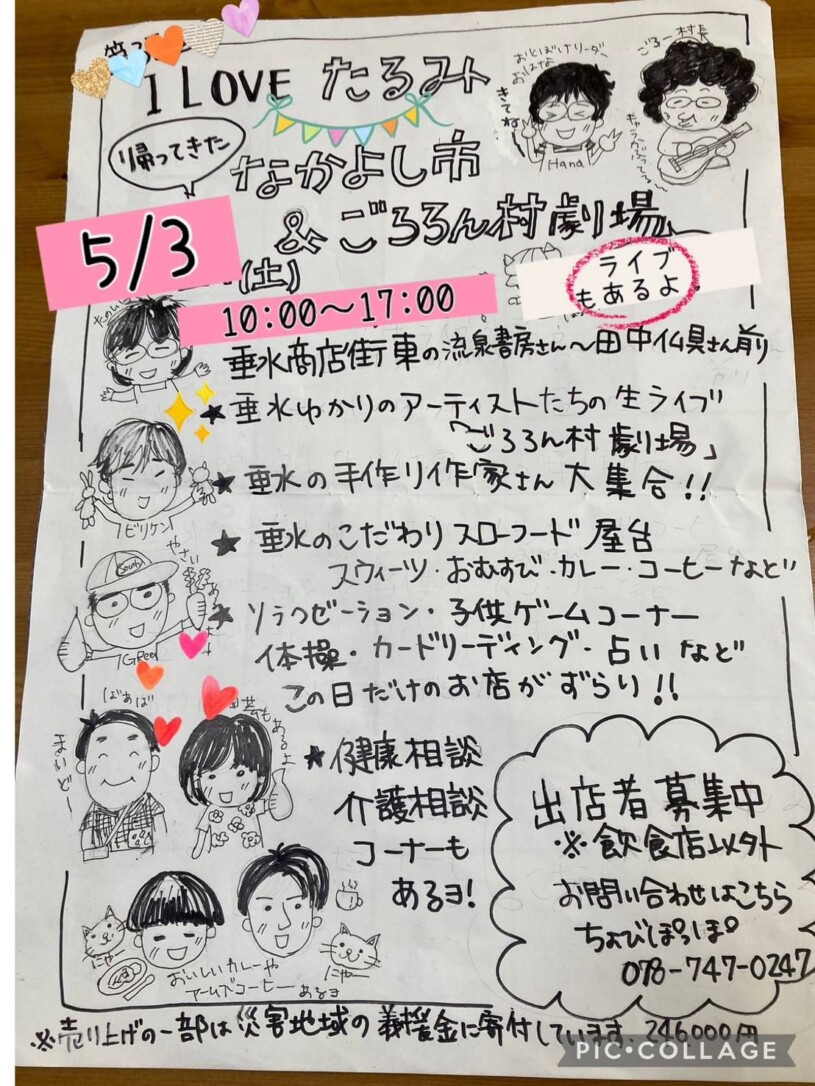 I LOVE たるみ
帰ってきた
なかよし市
& ごろろん村劇場
5/3
(土)
10:00〜17:00
ライブ
もあるよ
おとぼけリーダー
おはな
きてね
Hana
ごろー村長
垂水商店街東の流泉書房さん〜田中仏具さん前
★垂水ゆかりのアーティストたちの生ライブ
「ごろろん村劇場」
★垂水の手作り作家さん大集合!!
★垂水のこだわりスローフード屋台
スウィーツ・おむすび・カレー・コーヒーなど
★リラクゼーション・子供ゲームコーナー
体操・カードリーディング・占いなど
この日だけのお店がずらり!!
ビリケン
やさい
South
Green
ばあば
まいどー
芸も
あるよ
★健康相談
介護相談
コーナーも
あるヨ!
出店者募集中
※飲食店以外
お問い合わせはこちら
ちょびぽっぽ
078-747-0247
にゃー
にゃー
おいしいカレーや
アームズコーヒーあるヨ
※売り上げの一部は災害地域の義援金に寄付しています、246,000円
PIC・COLLAGE